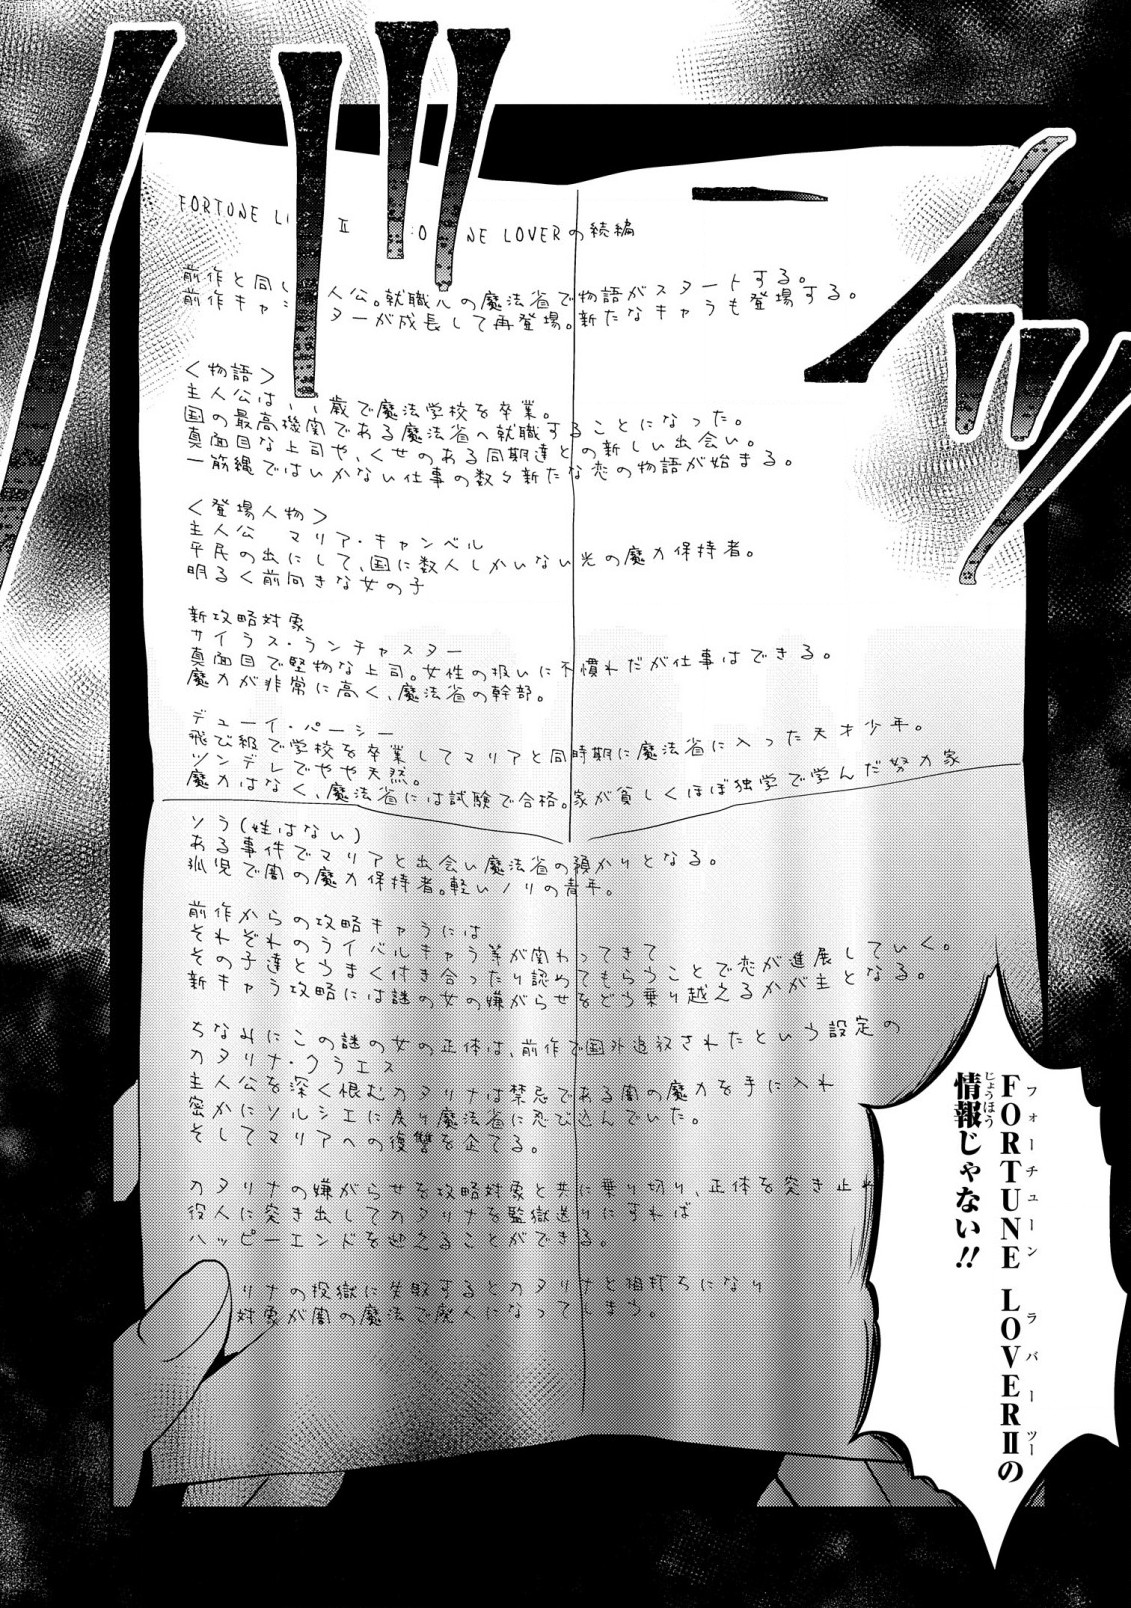 FORTUNE L Ⅱ O NE LOVERの続編
前作と同じ 人公。就職 の魔法省で物語がスタートする。
前作キャ ターが成長して再登場。新たなキャラも登場する。
<物語>
主人公は 歳で魔法学校を卒業。
国の最高機関である魔法省へ就職することになった。
真面目な上司や、くせのある同期達との新しい出会い。
一筋縄ではいかない仕事の数々新たな恋の物語が始まる。
<登場人物>
主人公 マリア・キャンベル
平民の出にして、国に数人しかいない光の魔力保持者。
明るく前向きな女の子
新攻略対象
サイラス・ランチャスター
真面目で堅物な上司。女性の扱いに不慣れだが仕事はできる。
魔力が非常に高く、魔法省の幹部。
デューイ・パーシー
飛び級で学校を卒業してマリアと同時期に魔法省に入った天才少年。
ツンデレでやや天然。
魔力はなく、魔法省には試験で合格。家が貧しくほぼ独学で学んだ努力家
ソラ(姓はない)
ある事件でマリアと出会い魔法省の預かりとなる。
孤児で闇の魔力保持者。軽いノリの青年。
前作からの攻略キャラには
それぞれのライバルキャラ等が関わってきて
その子達とうまく付き合ったり認めてもらうことで恋が進展していく。
新キャラ攻略には謎の女の嫌がらせをどう乗り越えるかが主となる。
ちなみにこの謎の女の正体は、前作で国外追放されたという設定の
カタリナ・クラエス
主人公を深く恨むカタリナは禁忌である闇の魔力を手に入れ
密かにソルシエに戻り魔法省に忍び込んでいた。
そしてマリアへの復讐を企てる。
カタリナの嫌がらせを攻略対象と共に乗り切り、正体を突き止め
役人に突き出してカタリナを監獄送りにすれば
ハッピーエンドを迎えることができる。
リナの投獄に失敗するとカタリナと相打ちになり
対象が闇の魔法で廃人になってしまう。
FORTUNE LOVERⅡの
フォーチューン ラバーツー
情報じゃない!!
じょうほう
バッ
バッ